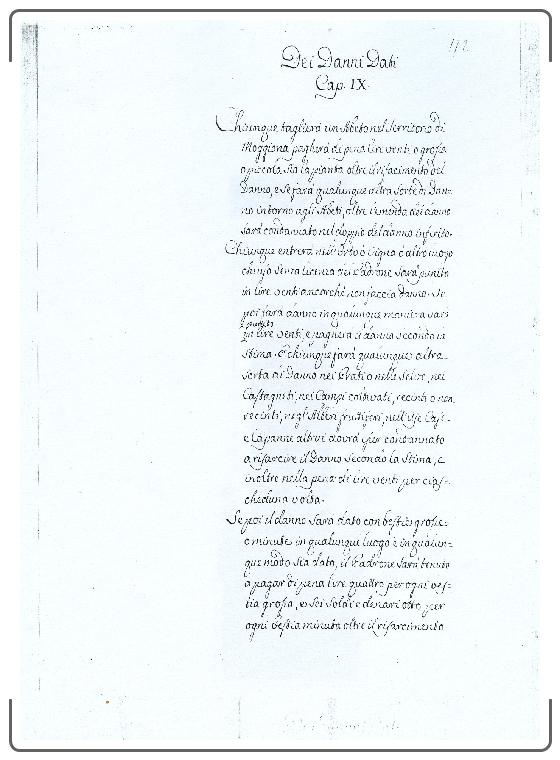 112
Dei Danni Dati
Cap. IX.
Chiunque taglierà un Abeto nel Territorio di
Moggiona pagherà di pena lire venti o grossa
o piccola sia la pianta oltre il rifacimento del
Danno, e se farà qualunque altra sorte di Dan=
no intorno agli Abeti, oltre l'emenda del danno
sarà condannato nel doppio del danno inferito.
Chiunque entrerà nell'Orto o Vigna e altro luogo
chiuso senza licenza del Padrone sarà punito
in lire venti ancorchè non faccia danno. Se
poi farà danno in qualunque maniera sarà
punito
in lire venti, e pagherà il danno secondo la
Stima. E chiunque farà qualunque altra
sorta di Danno nei Prati o nelle Selve, nei
Castagneti, nei Campi coltivati, recinti o non
recinti, negli Alberi fruttiferi, nelle Case
e Capanne altrui dovrà esser condannato
a rifarcire il Danno secondo la Stima, e
inoltre nella pena di lire venti per cias=
cheduna volta.
Se poi il danno sarà dato con bestie grosse
o minute in qualunque luogo e in qualun=
que modo sia dato, il Padrone sarà tenuto
a pagar di pena lire quattro per ogni bes=
tia grossa, e Soldi e denari otto per
ogni bestia minuta oltre il risarcimento